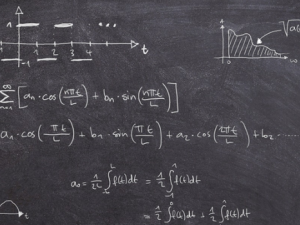 1 2 3 4 t
-1
∞
∑ n=1 [ aₙ · cos(nπt/L) + bₙ · sin(nπt/L) ]
a₁ · cos(πt/L) + b₁ · sin(πt/L) + a₂ · cos(2πt/L) + b₂ ....
a₀ = 1/2L ∫ f(t)dt = 1/2 ∫ f(t)dt
= 1/2 ∫ f(t)dt + 1/2 ∫ f(t)dt
t